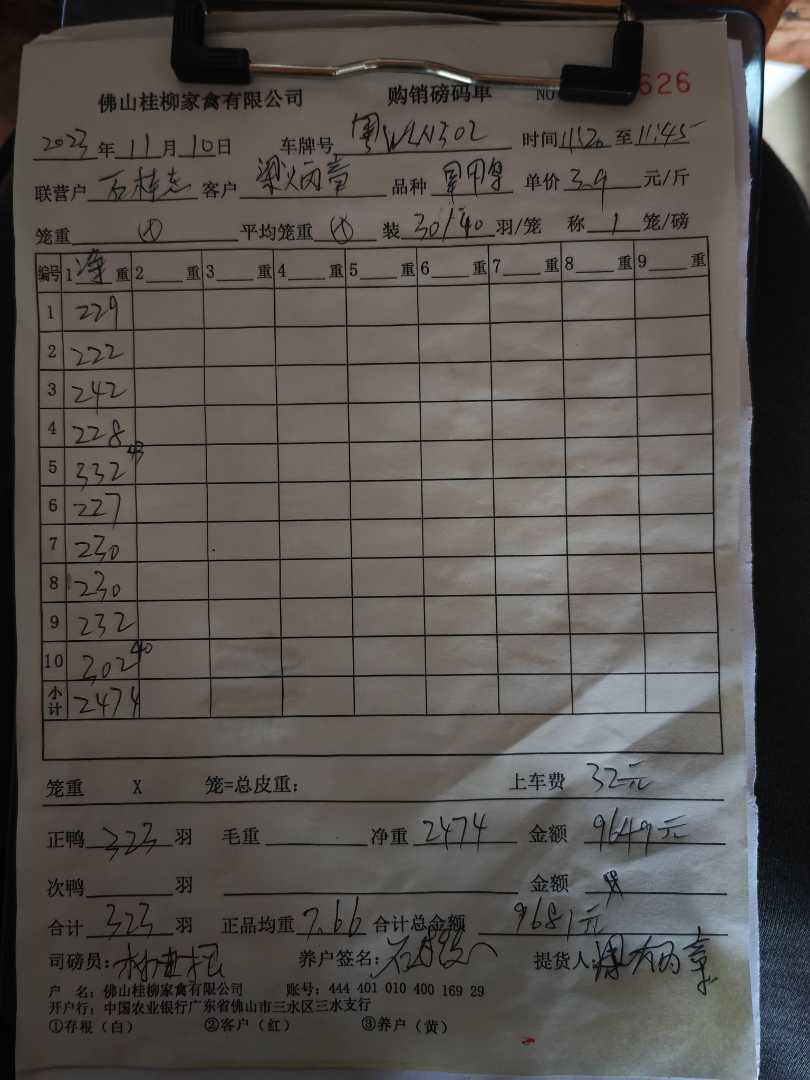 佛山桂柳家禽有限公司 购销磅码单 NO 626
2023年11月10日 车牌号粤WLN302 时间1120至11:45
联营户 客户梁炳章 品种 单价3.9元/斤
笼重 平均笼重 装30/40羽/笼 称1笼/磅
编号 1净重 2 重 3 重 4 重 5 重 6 重 7 重 8 重 9 重
1 229
2 222
3 242
4 228
5 332 43
6 227
7 230
8 230
9 232
10 302 40
小计 2474
笼重 X 笼=总皮重: 上车费 32元
正鸭323羽 毛重 净重2474 金额9649元
次鸭 羽 金额
合计323羽 正品均重7.66 合计总金额9681元
司磅员: 养户签名: 提货人:
户 名: 佛山桂柳家禽有限公司 账号: 444 401 010 400 169 29
开户行: 中国农业银行广东省佛山市三水区三水支行
①存根(白) ②客户(红) ③养户(黄)